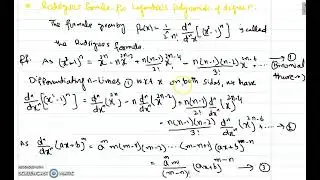 Rodrigues formula for Legendre's Polynomials of degree n.
The formula given by Pn(x) = 1/(2ⁿ n!) dⁿ/dxⁿ [x²-1]ⁿ is called
the Rodrigues formula.
Pf. As (x²-1)ⁿ = x²ⁿ - n x²ⁿ⁻² + n(n-1)/2! x²ⁿ⁻⁴ - n(n-1)(n-2)/3! x²ⁿ⁻⁶ + ... → ①
(Binomial theorem)
Differentiating n-times ① w.r.t x on both sides, we have
dⁿ/dxⁿ [x²-1]ⁿ = dⁿ/dxⁿ (x²ⁿ) - n dⁿ/dxⁿ (x²ⁿ⁻²) + n(n-1)/2! dⁿ/dxⁿ (x²ⁿ⁻⁴)
- n(n-1)(n-2)/3! dⁿ/dxⁿ x²ⁿ⁻⁶ + ... → ②
As dⁿ/dxⁿ (ax+b)ᵐ = aⁿ m(m-1)(m-2) ... (m-n+1) (ax+b)ᵐ⁻ⁿ
= aⁿ m!/(m-n)! (ax+b)ᵐ⁻ⁿ → ③